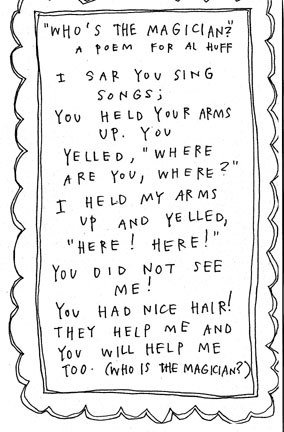 "WHO'S THE MAGICIAN?"
A POEM FOR AL HUFF
I SAR YOU SING
SONGS;
YOU HELD YOUR ARMS
UP. YOU
YELLED, "WHERE
ARE YOU, WHERE?"
I HELD MY ARMS
UP AND YELLED,
"HERE! HERE!"
YOU DID NOT SEE
ME!
YOU HAD NICE HAIR!
THEY HELP ME AND
YOU WILL HELP ME
TOO. (WHO IS THE MAGICIAN?)